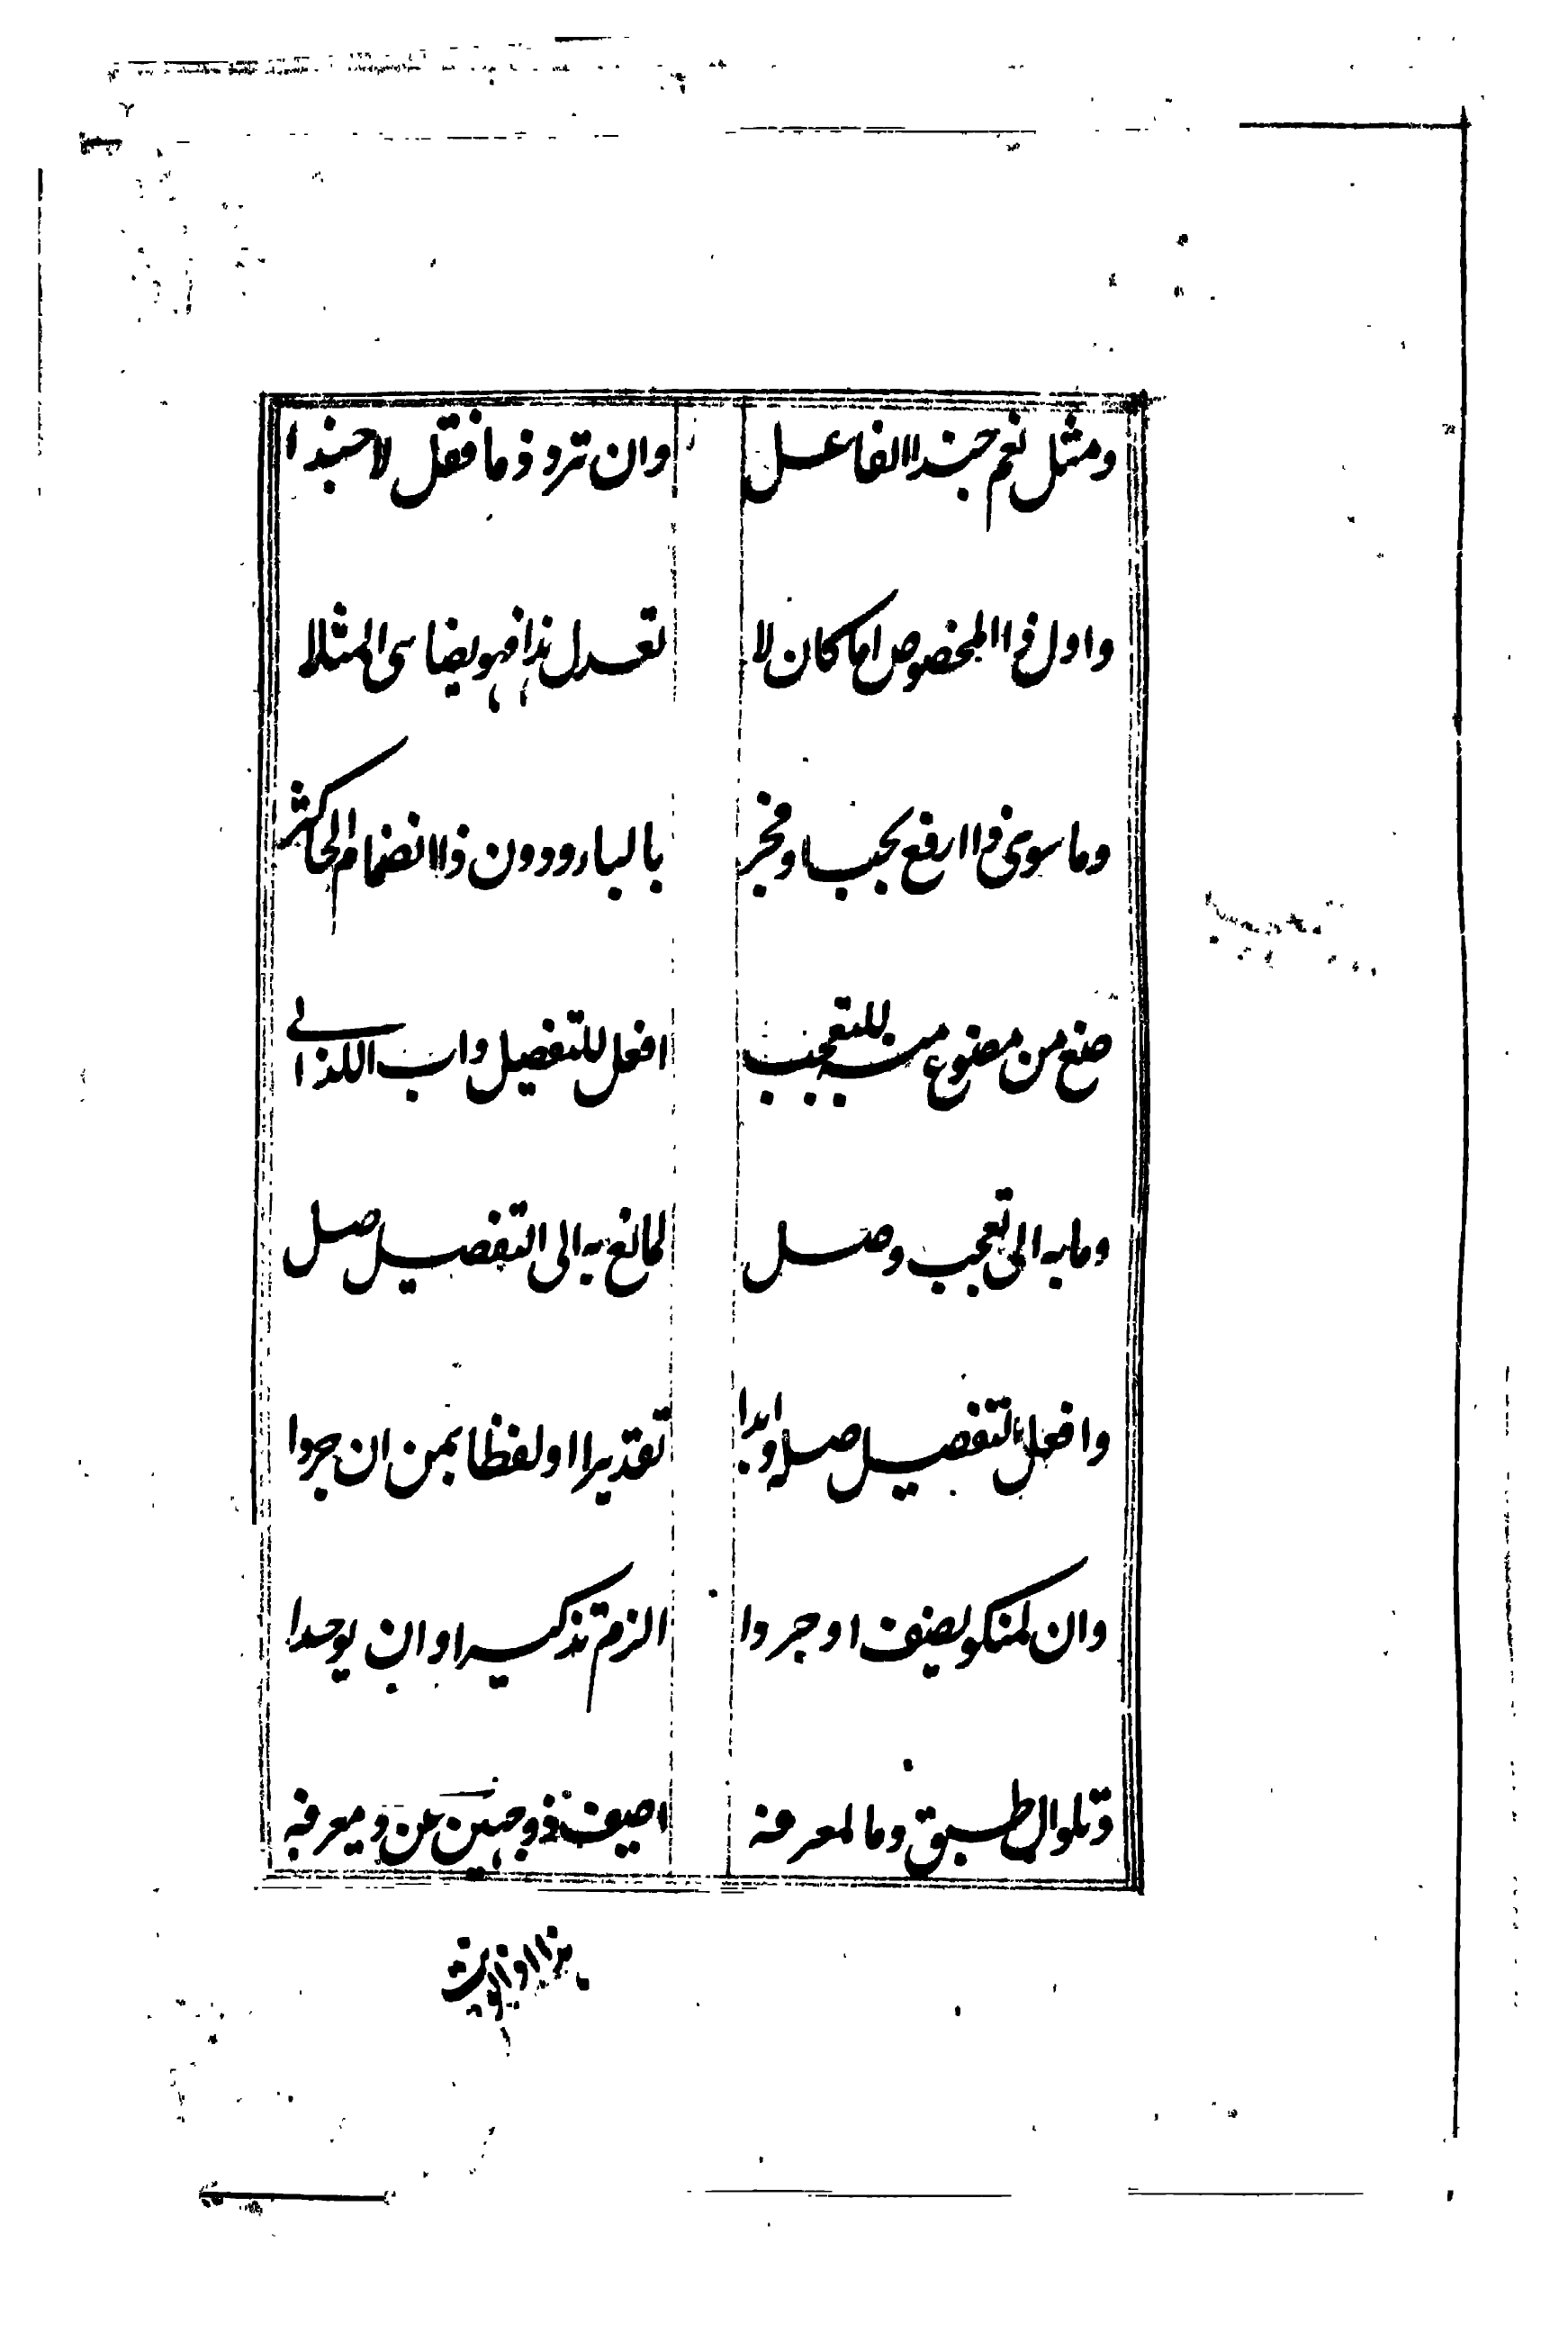 ومثل نعم حبذا الفاعل وان ترد ذما فقل لا حبذا
واول ذا المخصوص ايا كان لا تعدل بذا فهو يضاهى المثلا
وما سوى ذا ارفع بحب او فجر بالبا ودون ذا انضمام الحا كثر
صغ من مصوغ منه للتعجب افعل للتفضيل واب اللذ ابي
وما به الى تعجب وصل لمانع به الى التفضيل صل
وافعل التفضيل صله ابدا تقديرا او لفظا بمن ان جردا
وان لمنكور يضف او جردا الزم تذكيرا وان يوحدا
وتلو ال طبق وما لمعرفه اضيف ذو وجهين عن ذي معرفه
هذا اذا نويت